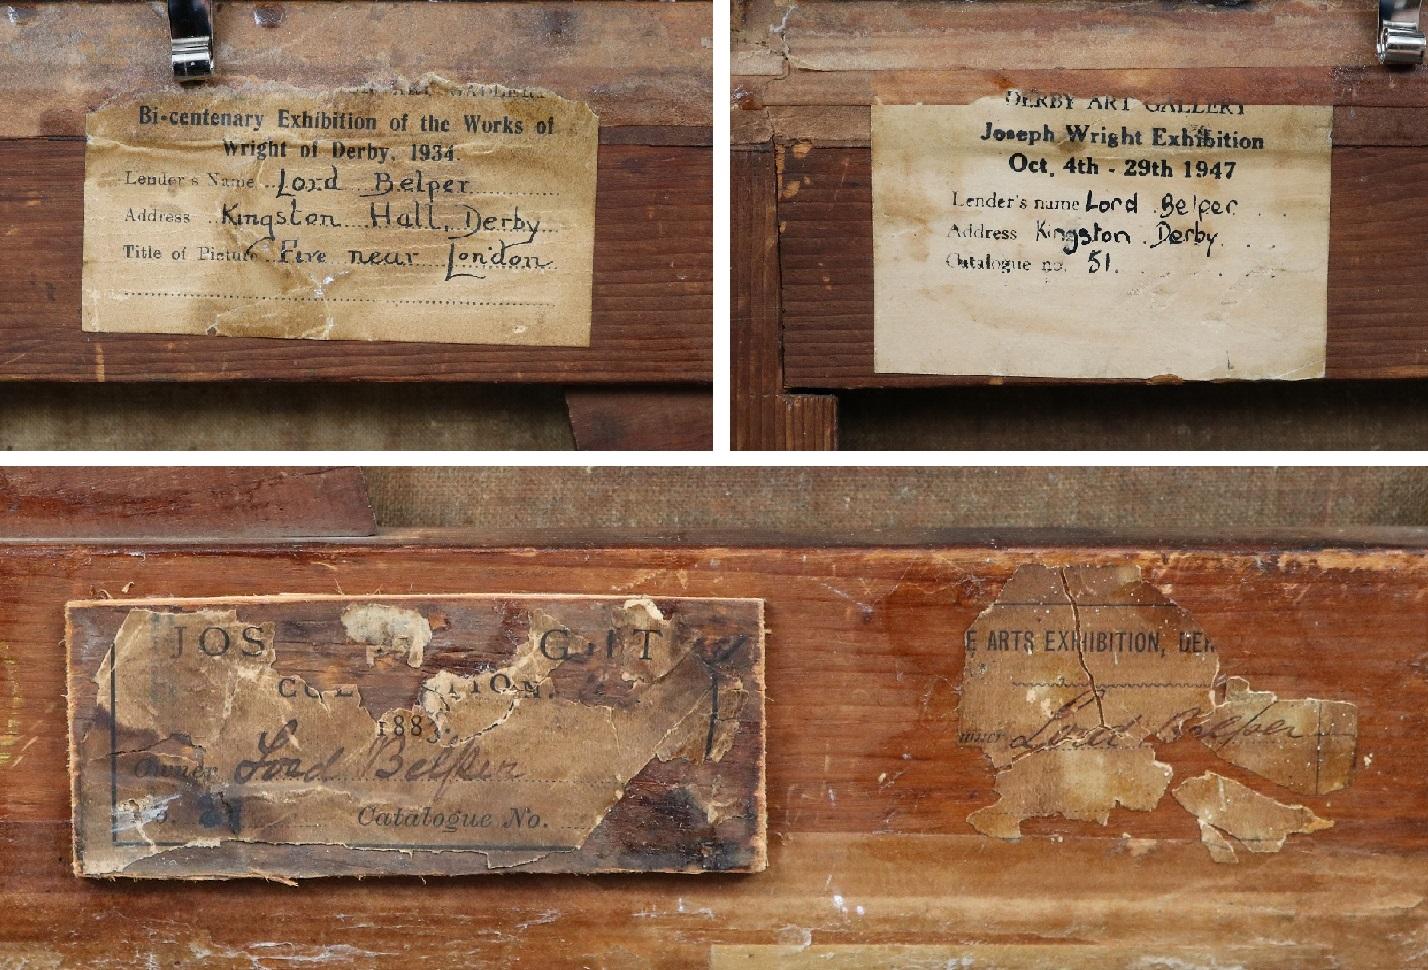 ART GALLERY
Bi-centenary Exhibition of the Works of
Wright of Derby, 1934.
Lender's Name Lord Belper
Address Kingston Hall, Derby
Title of Picture Fire near London
DERBY ART GALLERY
Joseph Wright Exhibition
Oct. 4th - 29th 1947
Lender's name Lord Belper
Address Kingston Derby
Catalogue no. 51.
JOS G HT
CO TION.
1883.
Owner Lord Belper
Catalogue No.
E ARTS EXHIBITION, DER
Lord Belper